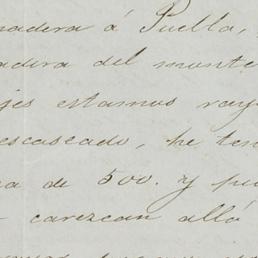 madera á Puella,
madera del monte
jes estamos
escaseado, he ten
a de 500. y pu
carezcan alló